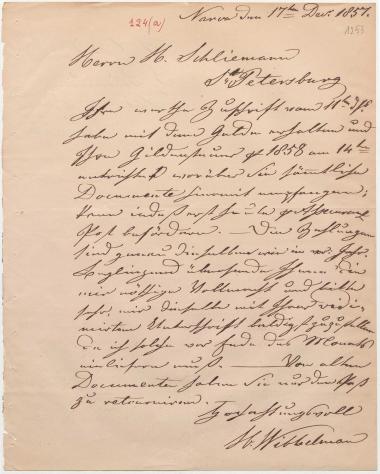 124(a)
Narva den 17ten Dec. 1857.
1253
Herrn H. Schliemann
St. Petersburg
Ihre werthe Zuschrift vom 11ten
habe mit dem Gelde erhalten und
Ihre Gildensteuer pr 1858 am 14ten
entrichtet worüber Sie sämtliche
Documente hiermit empfangen;
Post befördern. — Die Zahlungen
sind genau dieselben wie im vor. Jahr.
mir nöthige Vollmacht und bitte
sehr, mir dieselbe mit Ihrer
Unterschrift baldigst zuzustellen
da ich solche vor Ende des Monats
einliefern muß. — Von alten
Documenten haben Sie nur den Paß
zu retourniren.
Hochachtungsvoll
H. Wibbelman